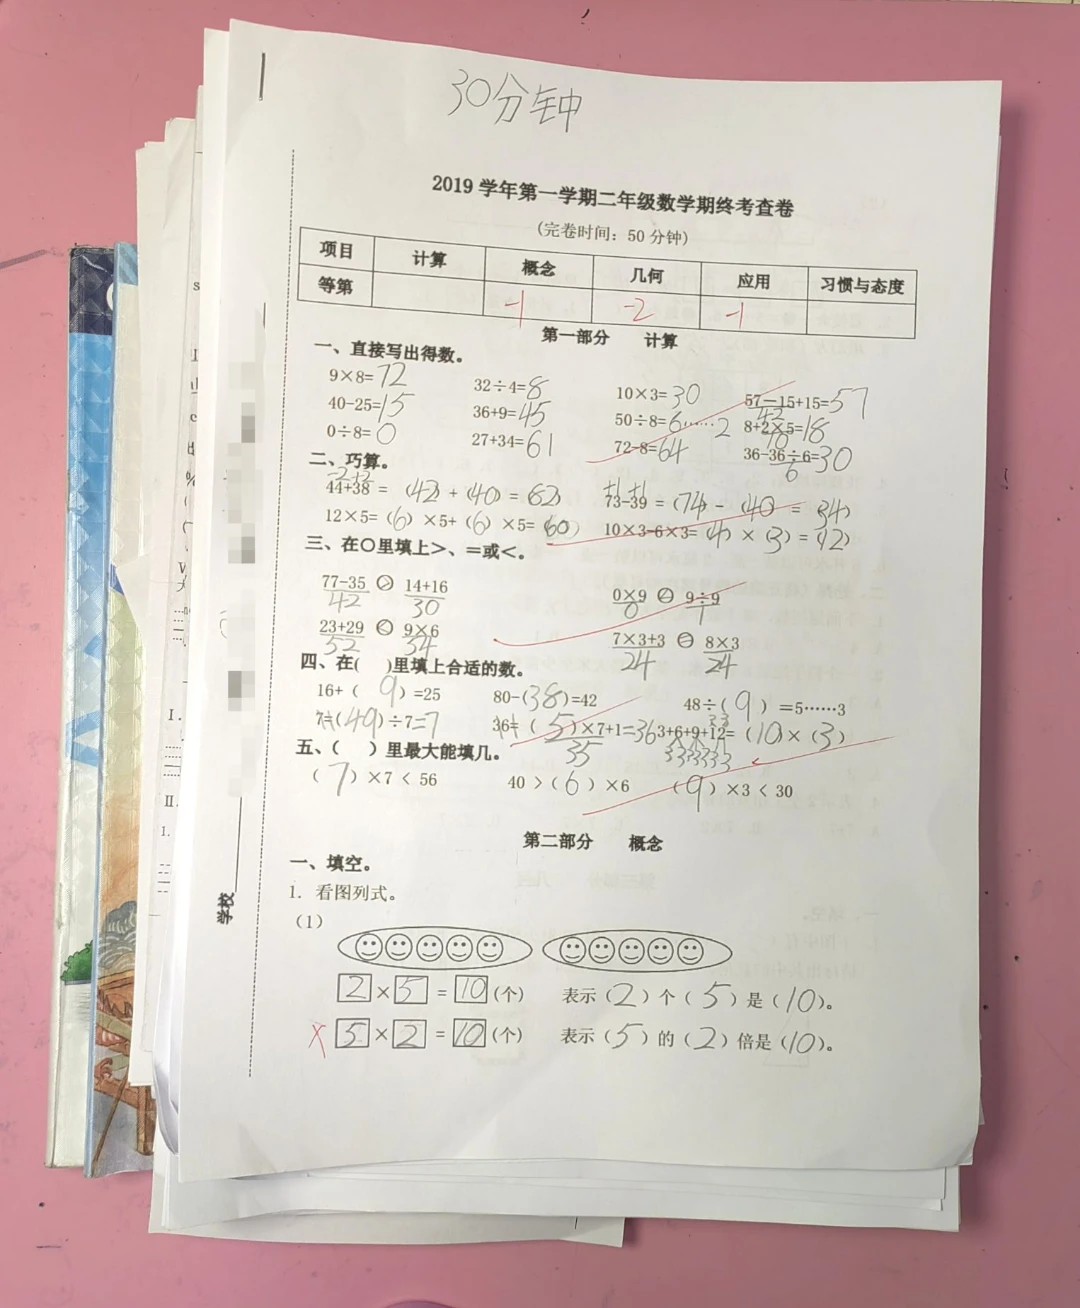 30分钟
2019 学年第一学期二年级数学期终考查卷
(完卷时间：50 分钟)
项目 计算 概念 几何 应用 习惯与态度
等第 -1 -2 -1
第一部分 计算
一、直接写出得数。
9×8=72 32÷4=8 10×3=30 57－15+15=57
42
40-25=15 36+9=45 50÷8=6……2 8+2×5=18
10
0÷8=0 27+34=61 72-8=64 36-36÷6=30
6
二、巧算。
-2 +2 +1 +1
44+38 = (42) + (40) = (82) 73-39 = (74) - (40) = (34)
12×5= (6) ×5+ (6) ×5= (60) 10×3-6×3= (4) × (3) = (12)
三、在○里填上>、=或<。
77-35 > 14+16 0×9 < 9÷9
42 30 0 1
23+29 < 9×6 7×3+3 = 8×3
52 54 24 24
四、在( )里填上合适的数。
16+( 9 )=25 80-(38)=42 48÷( 9 ) =5……3
7=(49)÷7=7 36= ( 5 )×7+1=36 3+6+9+12= (10)×(3)
35
五、( ) 里最大能填几。
( 7 ) ×7 < 56 40 >( 6 ) ×6 ( 9 ) ×3 < 30
第二部分 概念
一、填空。
1. 看图列式。
(1)
2 × 5 = 10 (个) 表示 ( 2 ) 个 ( 5 ) 是 (10)。
× 5 × 2 = 10 (个) 表示 ( 5 ) 的 ( 2 ) 倍是 (10)。
学校
I.
II.
1.